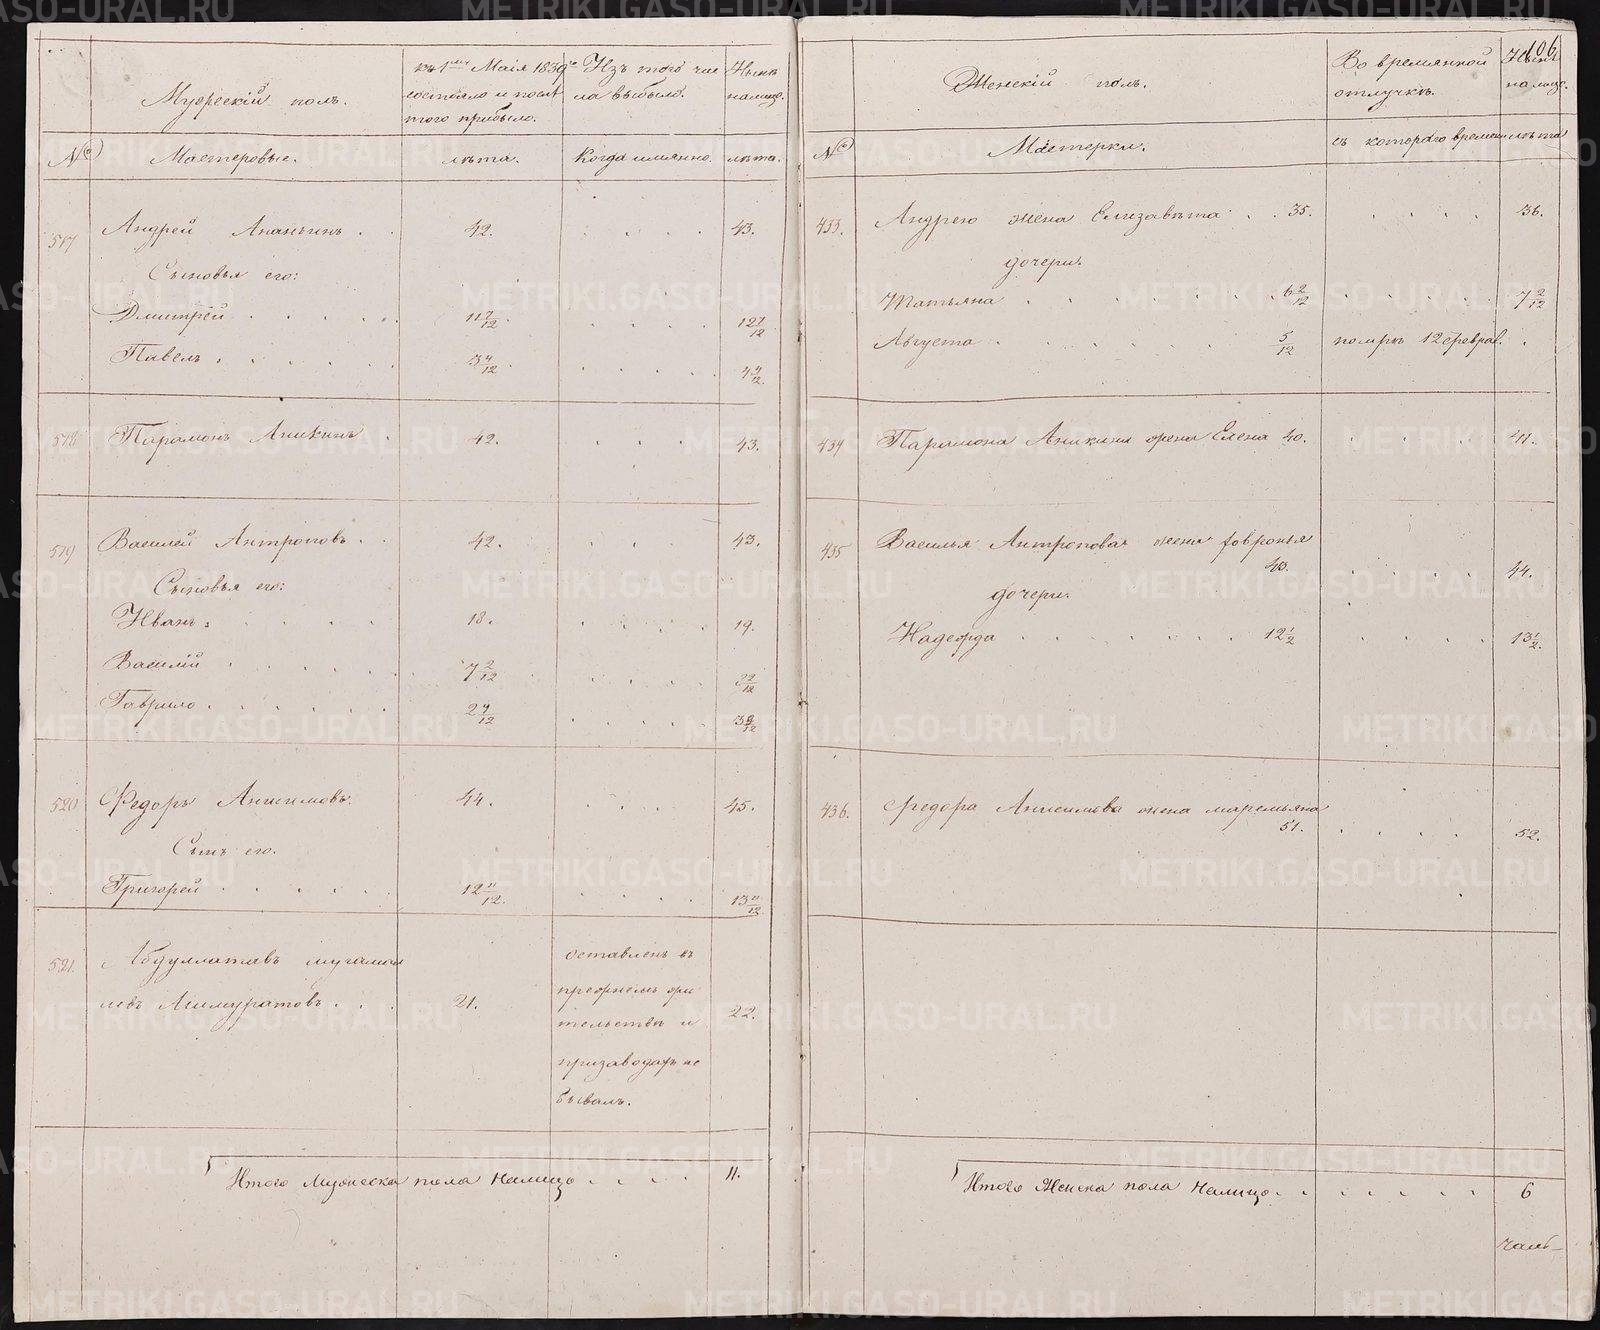 Мужескiй полъ.
къ 1му Маiя 1839го состояло и послѣ того прибыло.
Изъ того числа выбыло.
Нынѣ налицо.
№ Мастеровые. лѣта. Когда имянно. лѣта.
517 Андрей Ананьинъ . . 42. . . . . 43.
Сыновья его:
Дмитрей . . . . . 11 7/12 . . . . . 12 7/12
Павелъ . . . . . 3 4/12 . . . . . 4 4/12.
518 Парамонъ Аникинъ . 42. . . . 43.
519 Василей Антроповъ . . 42. . . 43.
Сыновья его:
Иванъ . . . . 18. . . . . 19.
Василiй . . . . . 7 2/12 . . . . 8 2/12
Гаврило . . . . . . 2 4/12 . . . .
520 Федоръ Анисимовъ. 44. . . . 45.
Сынъ его.
Григорей . . . . . 12 11/12. . . . . 13 11/12
521. Абдуллатавъ
. . . 21. 22.
оставленъ въ
прежнемъ жи
тельствѣ и
призаводахъ не
бывалъ.
Итого Мужеска пола налицо . . . . 11.
106
Женскiй полъ.
Во времянной отлучкѣ.
Нынѣ налицо.
№ Мастерки. съ котораго времени лѣта
433. Андрею жена Елизавѣта . . 35. . . . . 36.
дочери.
Татьяна . . . . . . . 6 2/12 . . . . . 7 2/12
Августа . . . . . . 5/12 помре 12 феврал. .
434 Парамона Аникина жена Елена 40. . . . . 41.
435 Василья Антропова жена Февронья
43. . . . . 44.
дочери.
Надежда . . . . . . . 12 1/2 . . . . 13 1/2.
436. Федора Анисимова жена маремьяна
51. . . . . 52.
Итого Женска пола налицо . . . . . . . 6